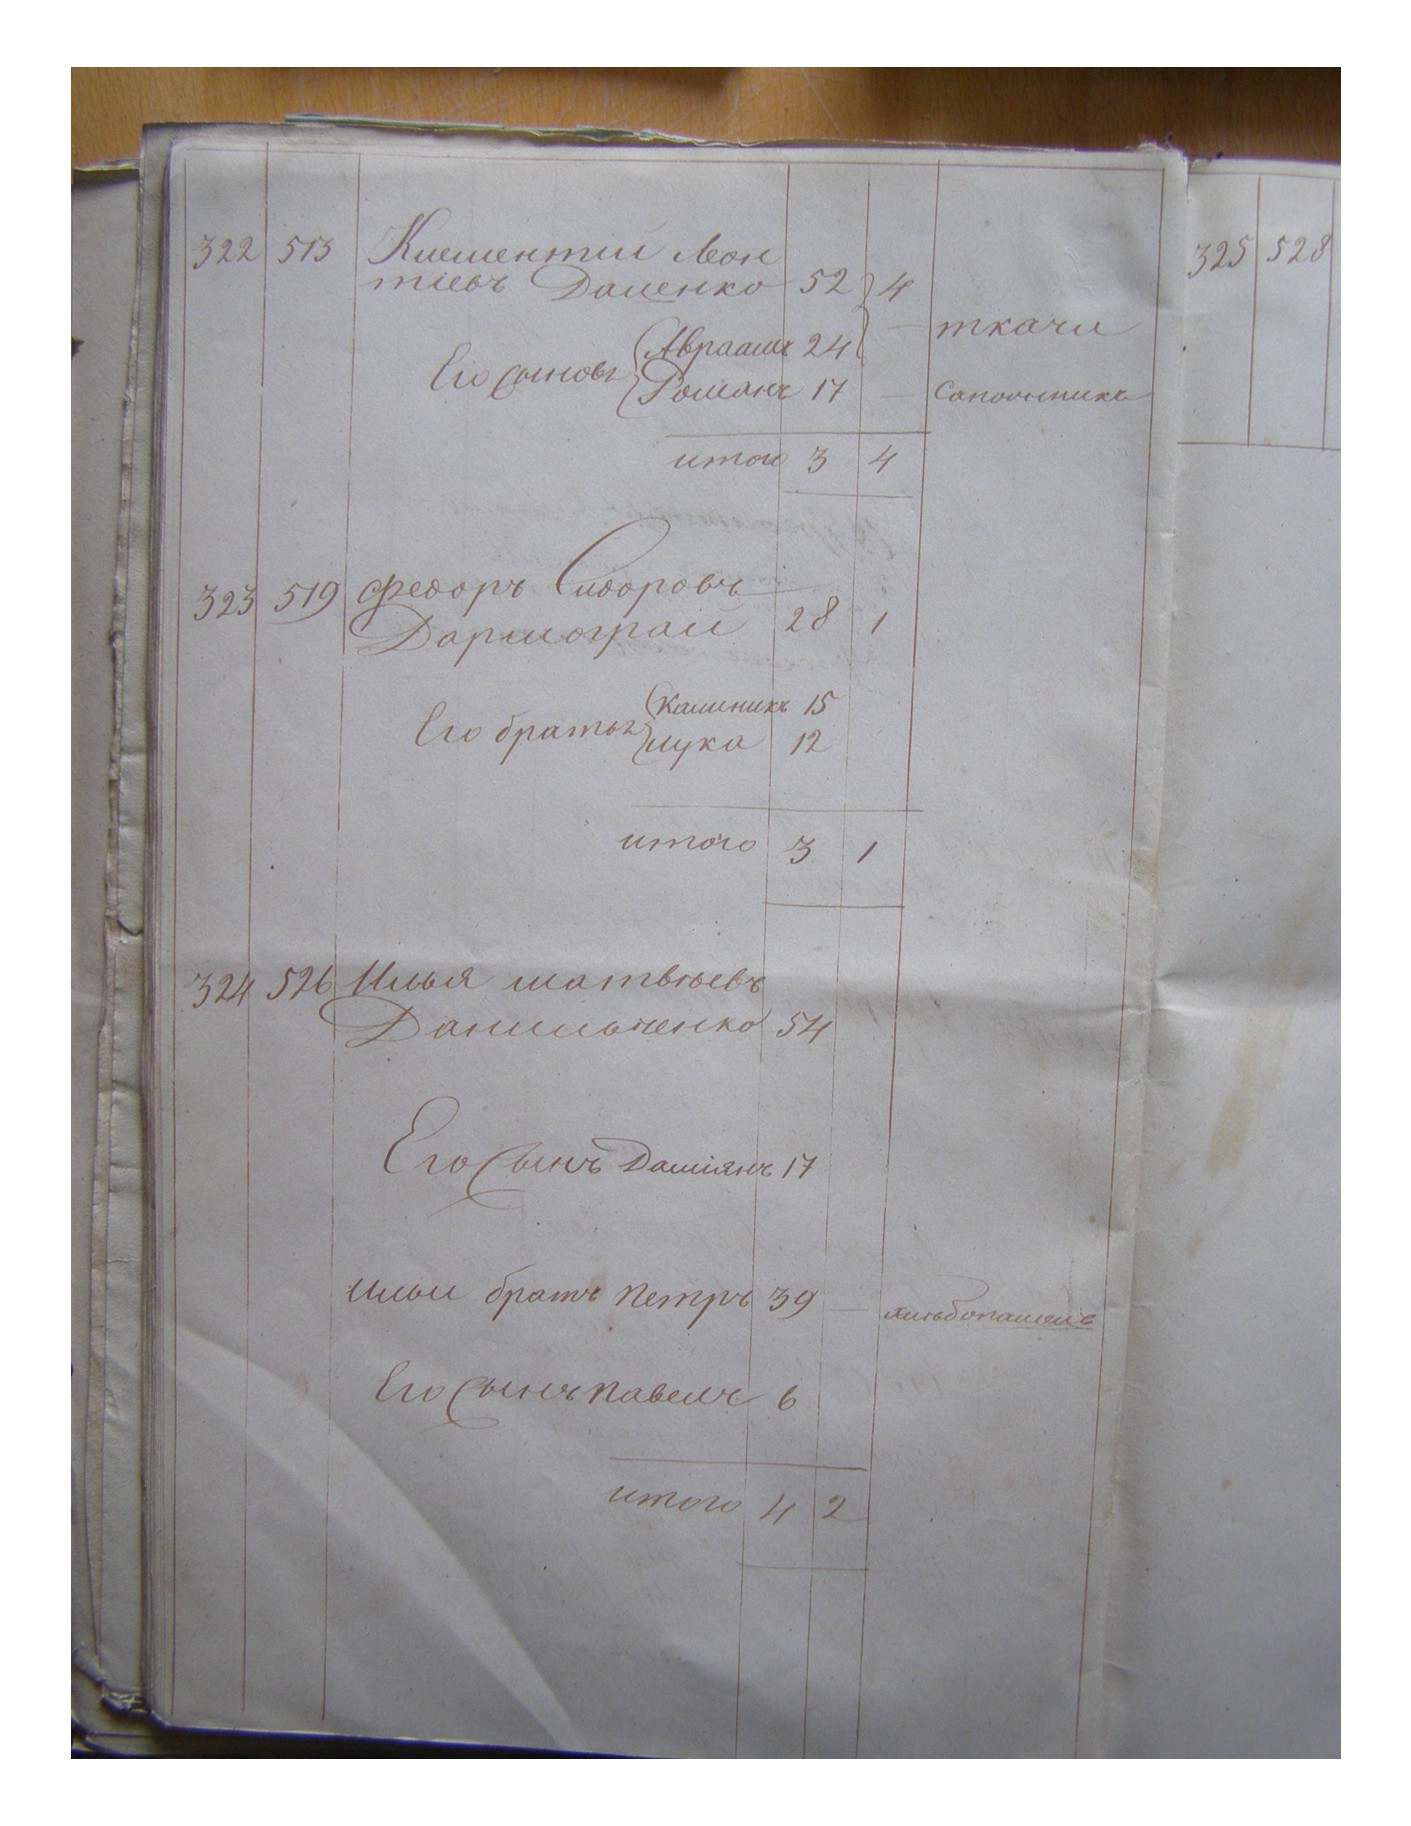 322 513 Клементій Леон
тіевъ Даценко 52 4
Его сыновья Авраамъ 24 — ткачи
Романъ 17 — Сапожникъ
итого 3 4
323 519 Федоръ Сидоровъ
Дармограй 28 1
Его братья Калиникъ 15
Лука 12
итого 3 1
324 526 Илья Матвѣевъ
Данильченко 54
Его Сынъ Даміянъ 17
Ильи братъ Петръ 39 — хлѣбопашецъ
Его Сынъ Павелъ 6
итого 4 2
325 528